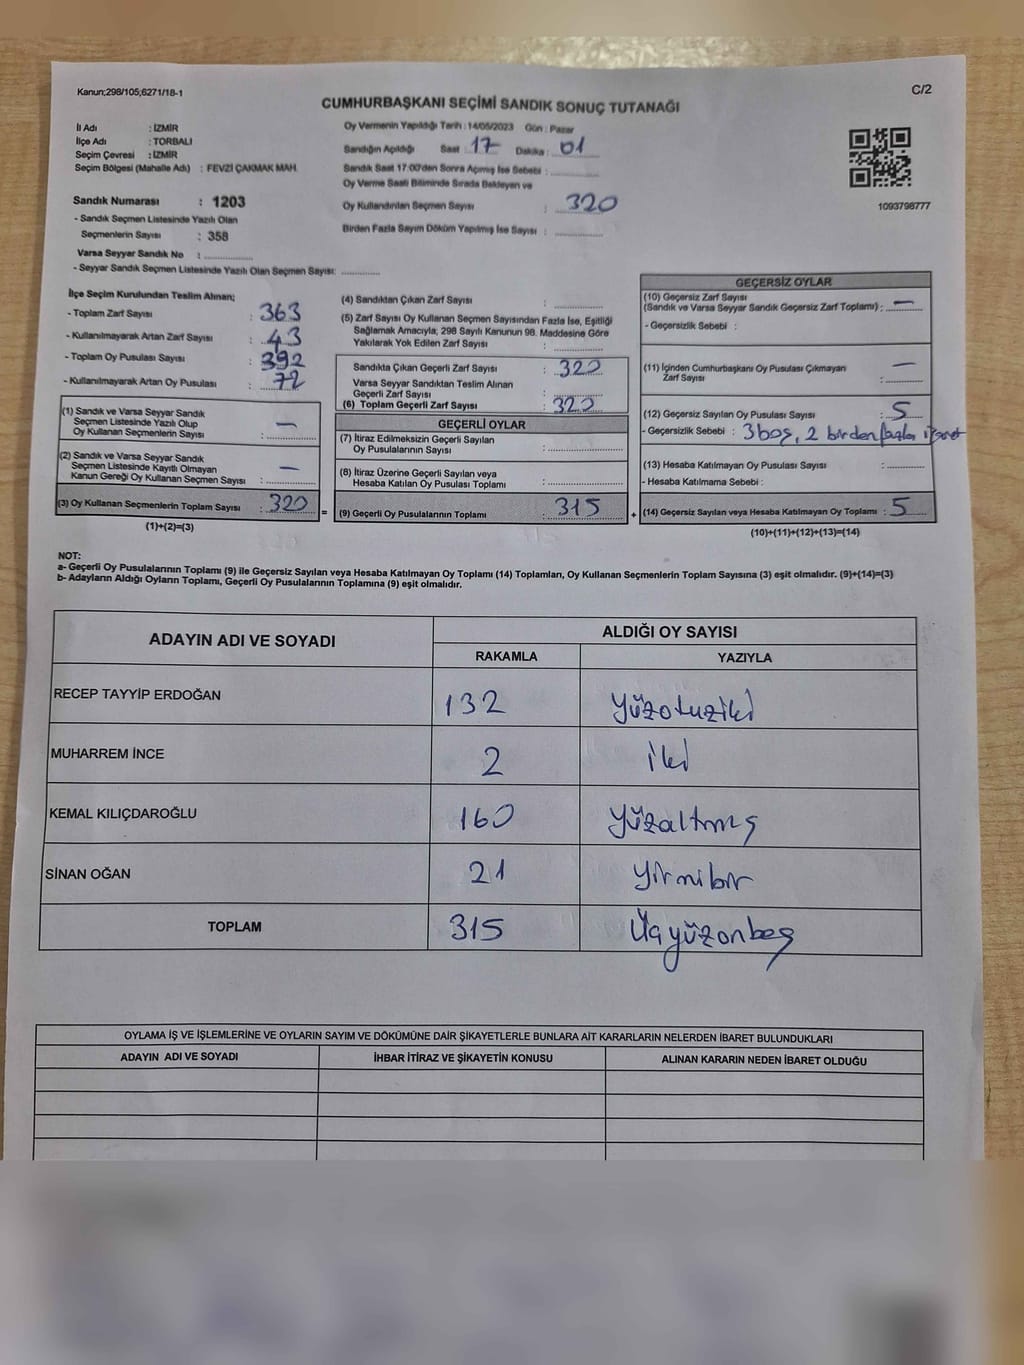 Kanun;298/105;6271/18-1
C/2
CUMHURBAŞKANI SEÇİMİ SANDIK SONUÇ TUTANAĞI
İl Adı : İZMİR
İlçe Adı : TORBALI
Seçim Çevresi : İZMİR
Seçim Bölgesi (Mahalle Adı) : FEVZİ ÇAKMAK MAH.
Sandık Numarası : 1203
- Sandık Seçmen Listesinde Yazılı Olan
Seçmenlerin Sayısı : 358
Varsa Seyyar Sandık No : ..............
- Seyyar Sandık Seçmen Listesinde Yazılı Olan Seçmen Sayısı: ............
Oy Vermenin Yapıldığı Tarih : 14/05/2023 Gün : Pazar
Sandığın Açıldığı Saat : 17 Dakika : 01
Sandık Saat 17:00'den Sonra Açılmış İse Sebebi : ..............
Oy Verme Saati Bitiminde Sırada Bekleyen ve
Oy Kullandırılan Seçmen Sayısı : 320
Birden Fazla Sayım Döküm Yapılmış İse Sayısı : ..............
1093798777
İlçe Seçim Kurulundan Teslim Alınan;
- Toplam Zarf Sayısı : 363
- Kullanılmayarak Artan Zarf Sayısı : 43
- Toplam Oy Pusulası Sayısı : 392
- Kullanılmayarak Artan Oy Pusulası : 72
(1) Sandık ve Varsa Seyyar Sandık
Seçmen Listesinde Yazılı Olup
Oy Kullanan Seçmenlerin Sayısı : —
(2) Sandık ve Varsa Seyyar Sandık
Seçmen Listesinde Kayıtlı Olmayan
Kanun Gereği Oy Kullanan Seçmen Sayısı : —
(3) Oy Kullanan Seçmenlerin Toplam Sayısı : 320 =
(1)+(2)=(3)
(4) Sandıktan Çıkan Zarf Sayısı : ..............
(5) Zarf Sayısı Oy Kullanan Seçmen Sayısından Fazla İse, Eşitliği
Sağlamak Amacıyla; 298 Sayılı Kanunun 98. Maddesine Göre
Yakılarak Yok Edilen Zarf Sayısı : ..............
Sandıkta Çıkan Geçerli Zarf Sayısı : 320
Varsa Seyyar Sandıktan Teslim Alınan
Geçerli Zarf Sayısı : ..............
(6) Toplam Geçerli Zarf Sayısı : 320
GEÇERLİ OYLAR
(7) İtiraz Edilmeksizin Geçerli Sayılan
Oy Pusulalarının Sayısı : ..............
(8) İtiraz Üzerine Geçerli Sayılan veya
Hesaba Katılan Oy Pusulası Toplamı : ..............
(9) Geçerli Oy Pusulalarının Toplamı : 315 +
GEÇERSİZ OYLAR
(10) Geçersiz Zarf Sayısı
(Sandık ve Varsa Seyyar Sandık Geçersiz Zarf Toplamı) : —
- Geçersizlik Sebebi :
(11) İçinden Cumhurbaşkanı Oy Pusulası Çıkmayan
Zarf Sayısı : —
(12) Geçersiz Sayılan Oy Pusulası Sayısı : 5
- Geçersizlik Sebebi : 3 boş, 2 birden fazla işaret
(13) Hesaba Katılmayan Oy Pusulası Sayısı : ..............
- Hesaba Katılmama Sebebi :
(14) Geçersiz Sayılan veya Hesaba Katılmayan Oy Toplamı : 5
(10)+(11)+(12)+(13)=(14)
NOT:
a- Geçerli Oy Pusulalarının Toplamı (9) ile Geçersiz Sayılan veya Hesaba Katılmayan Oy Toplamı (14) Toplamları, Oy Kullanan Seçmenlerin Toplam Sayısına (3) eşit olmalıdır. (9)+(14)=(3)
b- Adayların Aldığı Oyların Toplamı, Geçerli Oy Pusulalarının Toplamına (9) eşit olmalıdır.
ADAYIN ADI VE SOYADI
ALDIĞI OY SAYISI
RAKAMLA YAZIYLA
RECEP TAYYİP ERDOĞAN 132 Yüzotuziki
MUHARREM İNCE 2 iki
KEMAL KILIÇDAROĞLU 160 Yüzaltmış
SİNAN OĞAN 21 Yirmibir
TOPLAM 315 Üçyüzonbeş
OYLAMA İŞ VE İŞLEMLERİNE VE OYLARIN SAYIM VE DÖKÜMÜNE DAİR ŞİKAYETLERLE BUNLARA AİT KARARLARIN NELERDEN İBARET BULUNDUKLARI
ADAYIN ADI VE SOYADI İHBAR İTİRAZ VE ŞİKAYETİN KONUSU ALINAN KARARIN NEDEN İBARET OLDUĞU